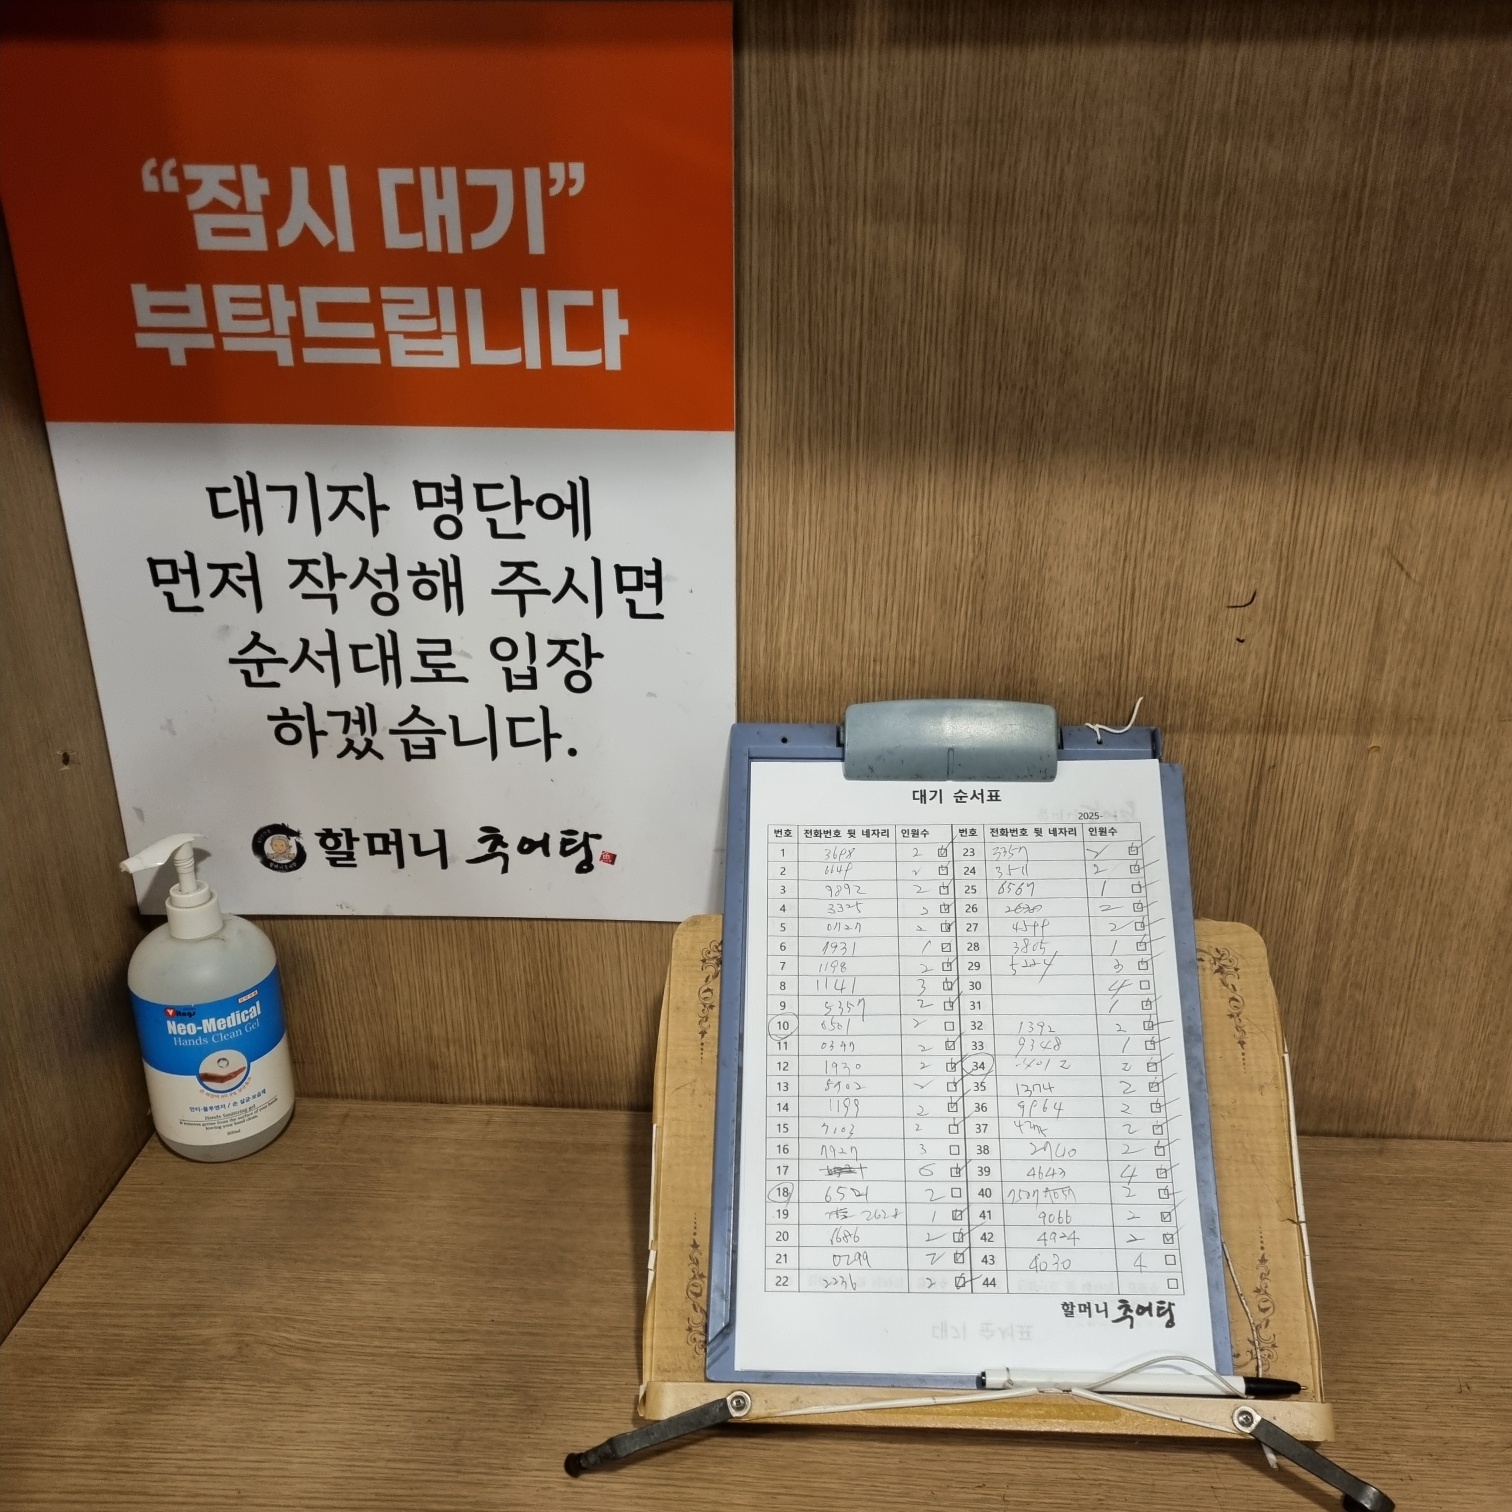 “잠시 대기”
부탁드립니다
대기자 명단에
먼저 작성해 주시면
순서대로 입장
하겠습니다.
할머니 추어탕
Vitags
Neo-Medical
Hands Clean Gel
Hands Sanitizing gel
대기 순서표
2025-
번호 전화번호 뒷 네자리 인원수 번호 전화번호 뒷 네자리 인원수
1 3698 2 23 3357 2
2 2 24 3511 2
3 9892 2 25 6567 1
4 3325 2 26 2
5 0727 2 27 4599 2
6 1931 1 28 3805 1
7 1198 2 29 5224 3
8 1141 3 30 4
9 5357 2 31 1
10 6501 2 32 1392 2
11 0347 2 33 9348 1
12 1930 2 34 2
13 2 35 1374 2
14 1199 2 36 9964 2
15 7103 2 37 2
16 7927 3 38 2740 2
17 6 39 4643 4
18 6521 2 40 7507 2
19 2628 1 41 9066 2
20 1686 2 42 4924 2
21 0299 2 43 4030 4
22 2236 2 44
할머니 추어탕